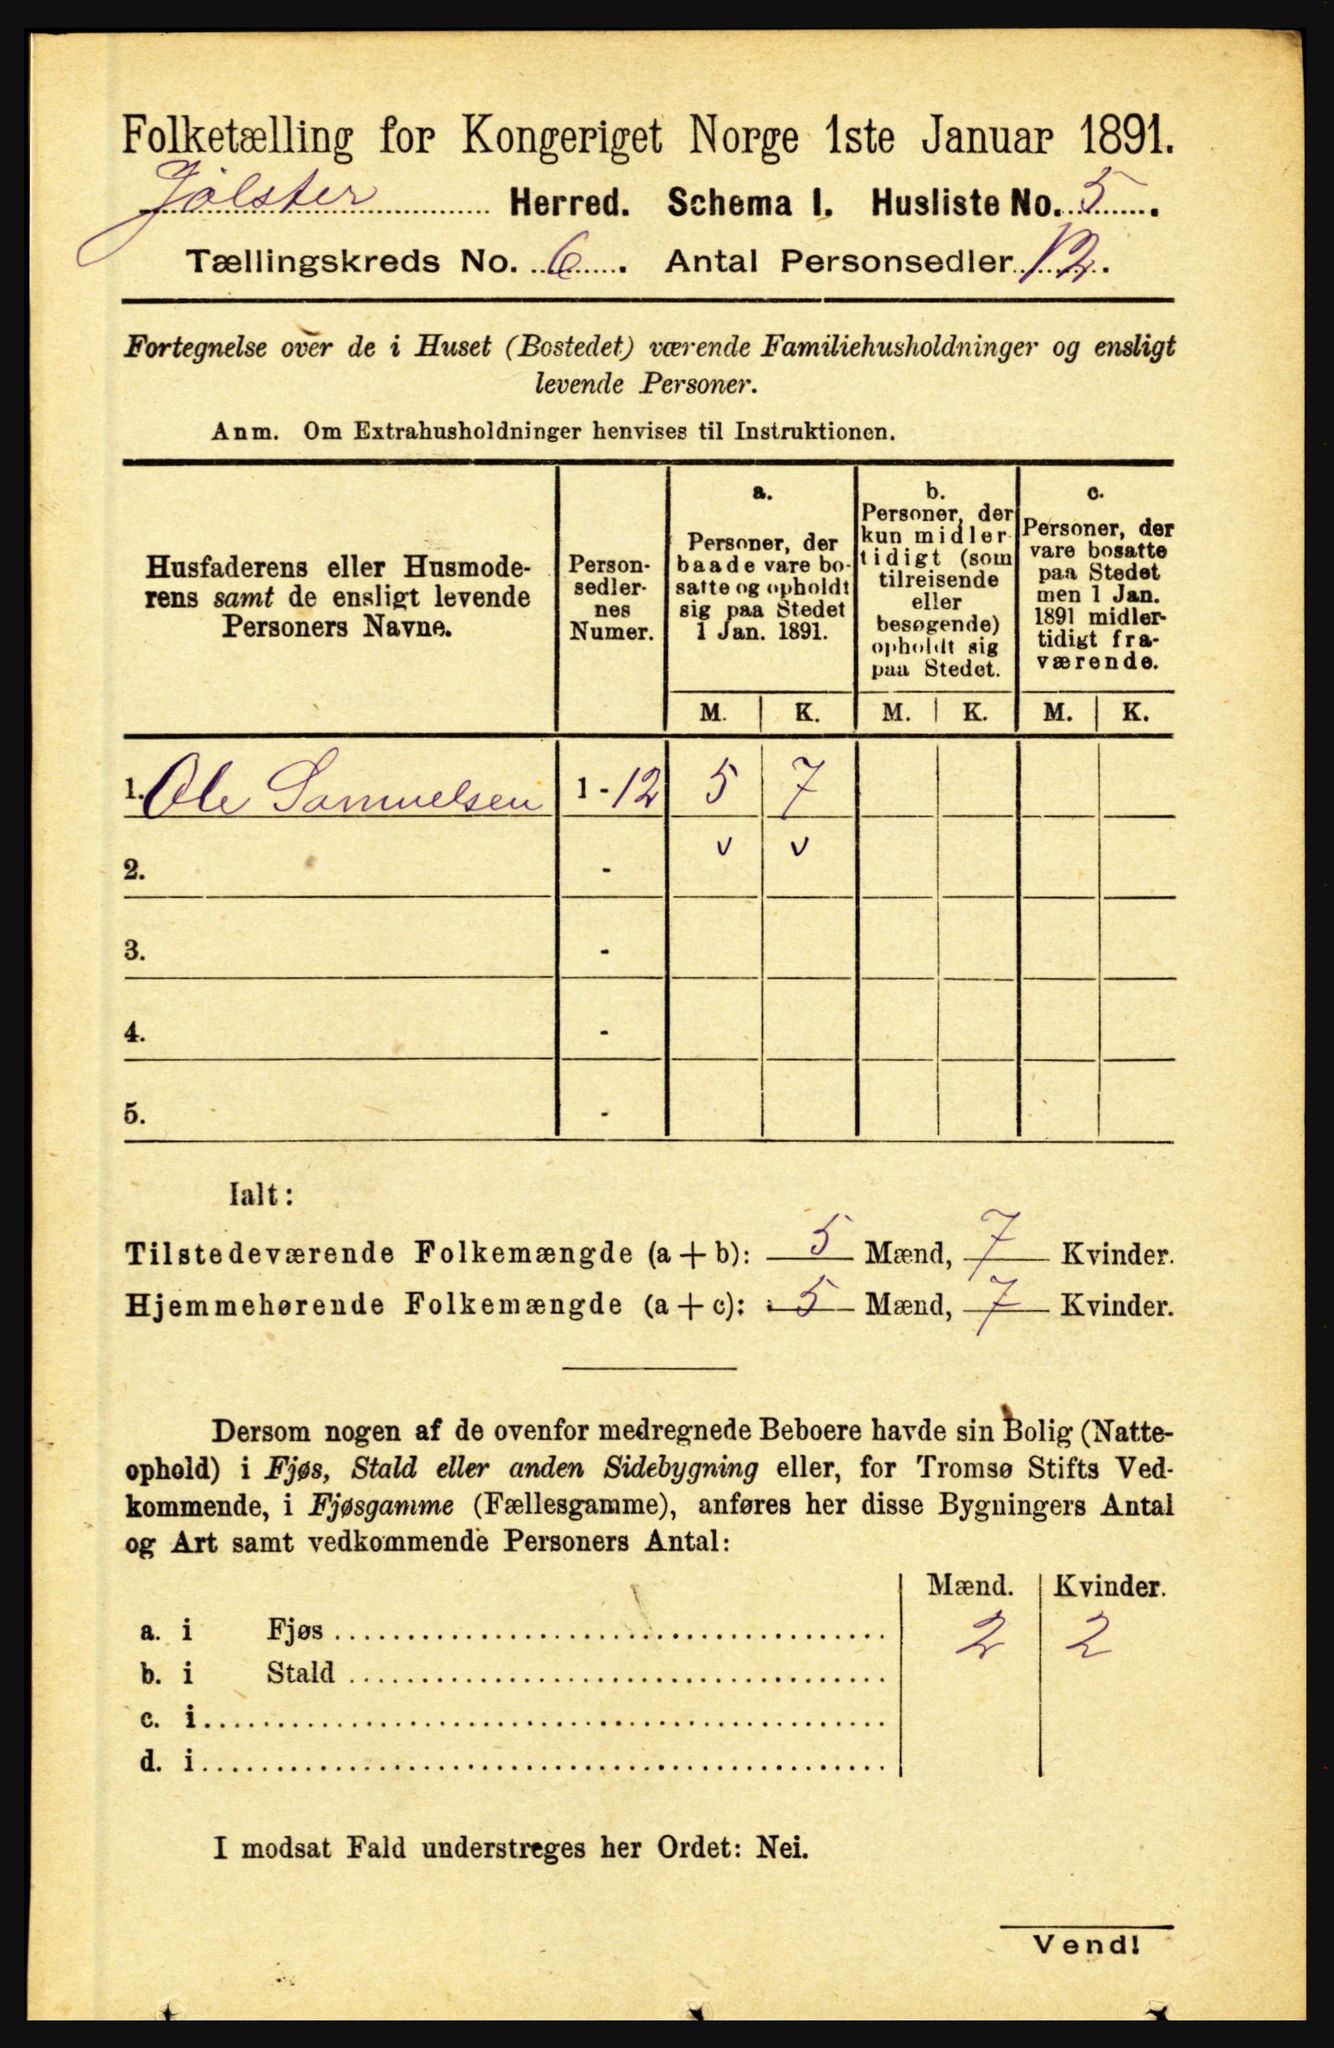 Folketælling for Kongeriget Norge 1ste Januar 1891.
Jölster Herred. Schema I. Husliste No. 5.
Tællingskreds No. 6. Antal Personsedler 12.
Fortegnelse over de i Huset (Bostedet) værende Familiehusholdninger og ensligt
levende Personer.
Anm. Om Extrahusholdninger henvises til Instruktionen.
Husfaderens eller Husmode-
rens samt de ensligt levende
Personers Navne.
Person-
sedler-
nes
Numer.
a.
Personer, der
baade vare bo-
satte og opholdt
sig paa Stedet
1 Jan. 1891.
b.
Personer, der
kun midler-
tidigt (som
tilreisende
eller
besøgende)
opholdt sig
paa Stedet.
c.
Personer, der
vare bosatte
paa Stedet
men 1 Jan.
1891 midler-
tidigt fra-
værende.
M. K. M. K. M. K.
1. Ole Samuelsen 1 - 12 5 7
v v
2. -
3. -
4. -
5. -
Ialt:
Tilstedeværende Folkemængde (a + b): 5 Mænd, 7 Kvinder.
Hjemmehørende Folkemængde (a + c): 5 Mænd, 7 Kvinder.
Dersom nogen af de ovenfor medregnede Beboere havde sin Bolig (Natte-
ophold) i Fjøs, Stald eller anden Sidebygning eller, for Tromsø Stifts Ved-
kommende, i Fjøsgamme (Fællesgamme), anføres her disse Bygningers Antal
og Art samt vedkommende Personers Antal:
Mænd. Kvinder.
a. i Fjøs 2 2
b. i Stald
c. i
d. i
I modsat Fald understreges her Ordet: Nei.
Vend!